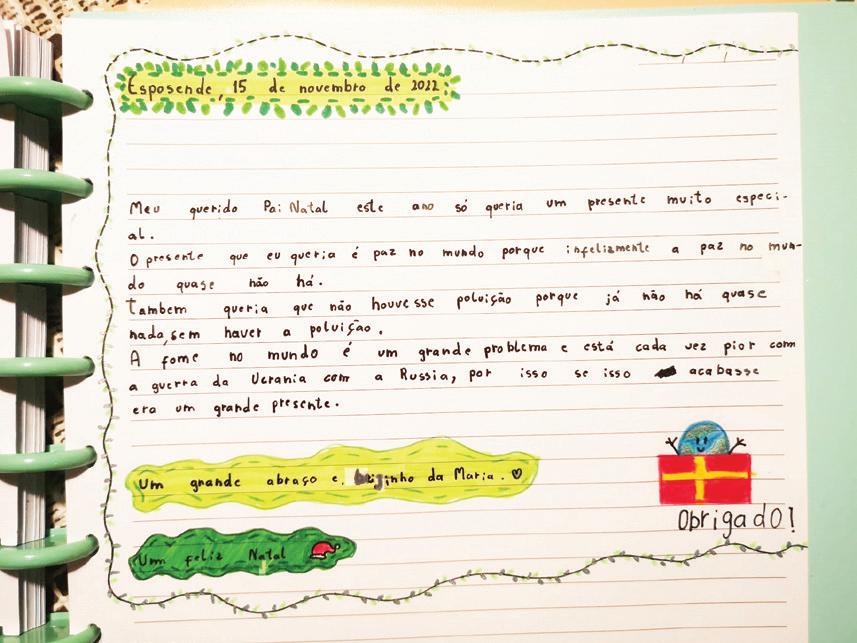 Esposende, 15 de novembro de 2022.
Meu querido Pai Natal este ano só queria um presente muito especi-
al.
O presente que eu queria é paz no mundo porque infelizmente a paz no mun-
do quase não há.
Tambem queria que não houvesse poluição porque já não há quase
nada, sem haver a poluição.
A fome no mundo é um grande problema e está cada vez pior com
a guerra da Ucrania com a Russia, por isso se isso acabasse
era um grande presente.
Um grande abraço e beijinho da Maria. ♡
Um feliz Natal
Obrigado!